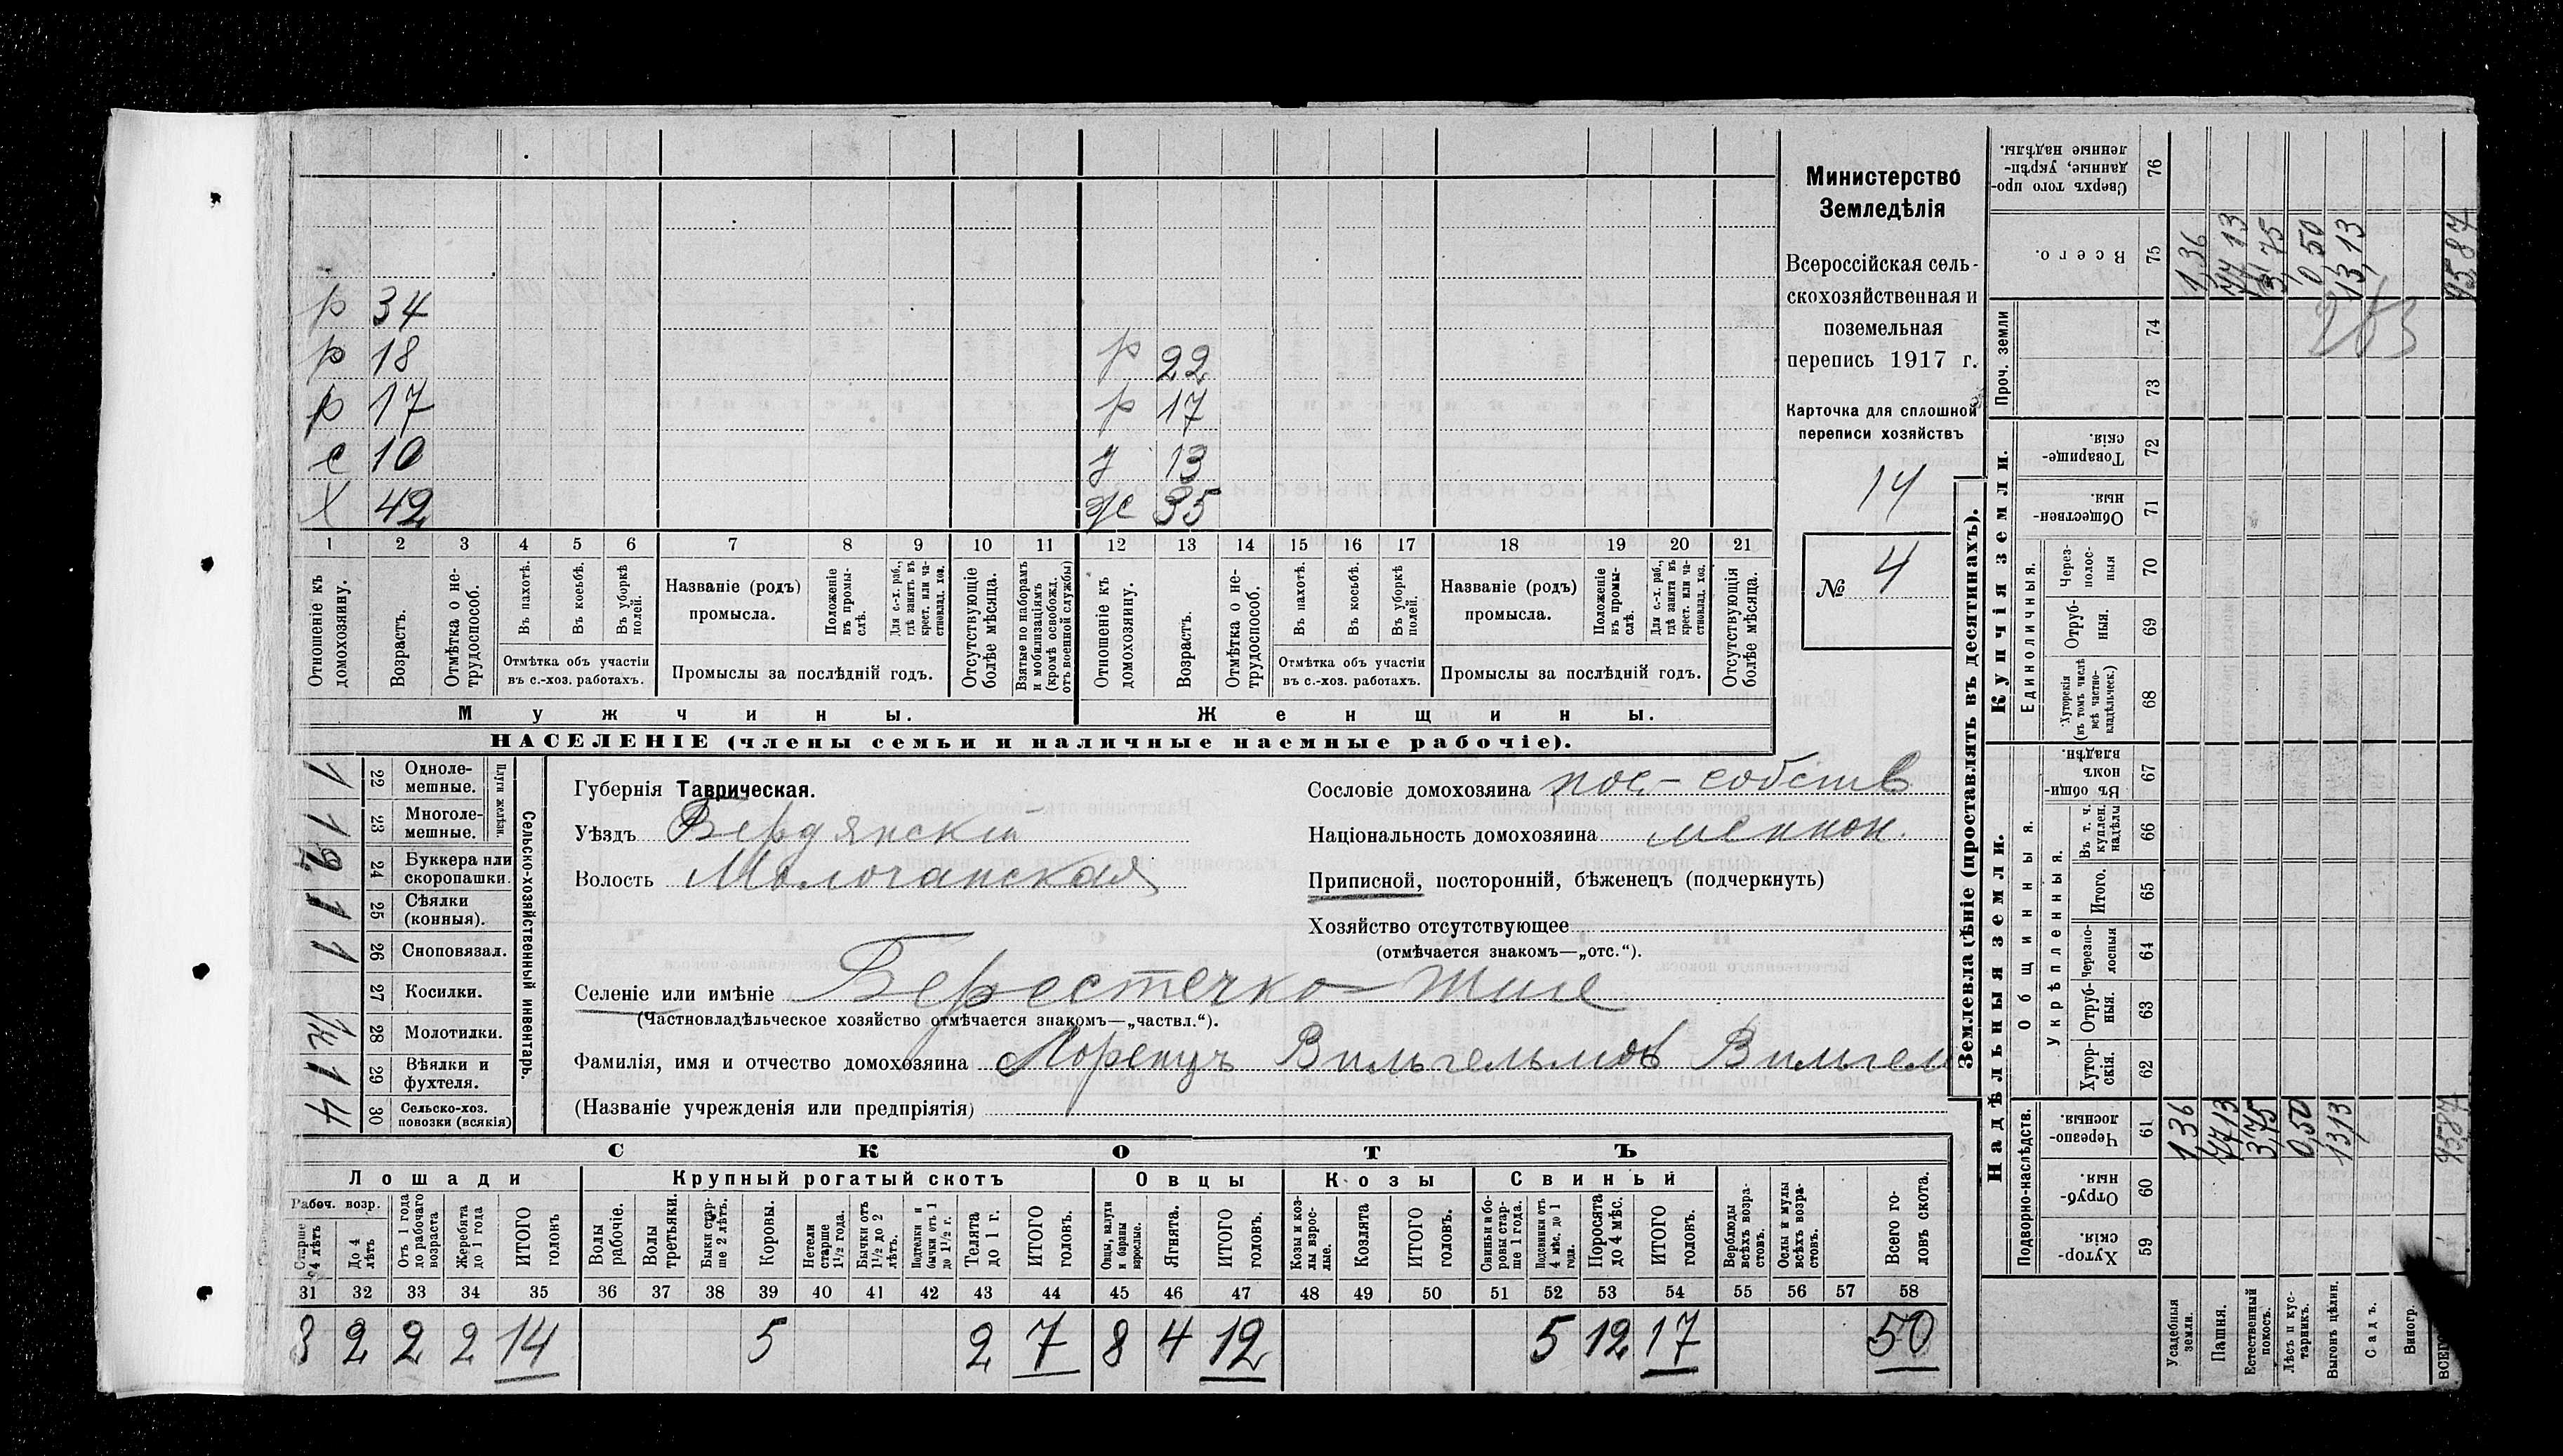 р 34
р 18
р 22
р 17
р 17
с 10
д 13
Х 42
ж 35
1 2 3 4 5 6 7 8 9 10 11 12 13 14 15 16 17 18 19 20 21
Отношеніе къ домохозяину.
Возрастъ.
Отмѣтка о не-трудоспособ.
Въ пахотѣ.
Въ косьбѣ.
Въ уборкѣ полей.
Отмѣтка объ участіи
въ с.-хоз. работахъ.
Названіе (родъ)
промысла.
Положеніе въ промы-слѣ.
Для с.-х. раб., гдѣ занятъ въ крест. или ча-стновлад. хоз.
Промыслы за послѣдній годъ.
Отсутствующіе болѣе мѣсяца.
Взятые по наборамъ и мобилизаціямъ (кромѣ освобожд. отъ военной службы)
Отношеніе къ домохозяину.
Возрастъ.
Отмѣтка о не-трудоспособ.
Въ пахотѣ.
Въ косьбѣ.
Въ уборкѣ полей.
Отмѣтка объ участіи
въ с.-хоз. работахъ.
Названіе (родъ)
промысла.
Положеніе въ промы-слѣ.
Для с.-х. раб., гдѣ занята въ крест. или ча-стновлад. хоз.
Промыслы за послѣдній годъ.
Отсутствующія болѣе мѣсяца.
Мужчины.
Женщины.
НАСЕЛЕНІЕ (члены семьи и наличные наемные рабочіе).
Министерство
Земледѣлія
Всероссійская сель-
скохозяйственная и
поземельная
перепись 1917 г.
Карточка для сплошной
переписи хозяйствъ
14
№ 4
Сельско-хозяйственный инвентарь.
Плуги желѣзн.
1 22 Одноле-мешные.
1 23 Многоле-мешные.
24 Буккера или скоропашки.
1 25 Сѣялки (конныя).
1 26 Сноповязал.
27 Косилки.
28 Молотилки.
1 29 Вѣялки и фухтеля.
4 30 Сельско-хоз. повозки (всякія)
Губернія Таврическая.
Уѣздъ Бердянскій
Волость Молочанская
Сословіе домохозяина пос-собств
Національность домохозяина меннон.
Приписной, посторонній, бѣженецъ (подчеркнуть)
Хозяйство отсутствующее
(отмѣчается знакомъ—„отс.“).
Селеніе или имѣніе Берестечко-Тиге
(Частновладѣльческое хозяйство отмѣчается знакомъ—„частвл.“).
Фамилія, имя и отчество домохозяина Лоренцъ Вильгельмъ Вильгел
(Названіе учрежденія или предпріятія)
СКОТЪ
Лошади
Крупный рогатый скотъ
Овцы
Козы
Свиньи
Рабоч. возр.
Старше 4 лѣтъ
До 4 лѣтъ
Отъ 1 года до рабочаго возраста
Жеребята до 1 года
ИТОГО головъ
Волы рабочіе.
Волы третьяки.
Быки стар-ше 2 лѣтъ.
Коровы.
Нетели старше 1½ года.
Бычки отъ 1½ до 2 лѣтъ.
Подтелки и бычки отъ 1 до 1½ г.
Телята до 1 г.
ИТОГО головъ.
Овцы, валухи и бараны взрослые.
Ягнята.
ИТОГО головъ.
Козы и коз-лы взрос-лые.
Козлята
ИТОГО головъ.
Свиньи и бо-ровы стар-ше 1 года.
Подсвинки отъ 4 мѣс. до 1 года.
Поросята до 4 мѣс.
ИТОГО головъ.
Верблюды всѣхъ возра-стовъ.
Ослы и мулы всѣхъ возра-стовъ.
Всего го-ловъ скота.
31 32 33 34 35 36 37 38 39 40 41 42 43 44 45 46 47 48 49 50 51 52 53 54 55 56 57 58
8 2 2 2 14 5 2 7 8 4 12 5 12 17 50
Землевладѣніе (проставлять въ десятинахъ).
Купчія земли.
Надѣльныя земли.
Сверхъ того про-данные, укрѣп-ленные надѣлы. 76
Всего. 75
Проч. земли 74 73
Товарище-скія. 72
Обществен-ныя. 71
Единоличныя.
Через-полос-ныя 70
Отруб-ныя. 69
Хуторскія (въ томъ числѣ всѣ частно-владѣльческ.) 68
Общинныя.
Въ общи-номъ владѣн. 67
Укрѣпленныя.
Въ т. ч. куплен. надѣлы 66
Итого. 65
Черезпо-лосныя 64
Отруб-ныя. 63
Хутор-скія. 62
Подворно-наслѣдств.
Черезпо-лосныя. 61
Отруб-ныя. 60
Хутор-скія. 59
Усадебныя земли. 1,36 1,36
Пашня.
Естественный покосъ. 3,75 3,75
Лѣсъ и кус-тарникъ. 0,50 0,50
Выгонъ цѣлин. 13,13 13,13
Садъ.
Виногр.